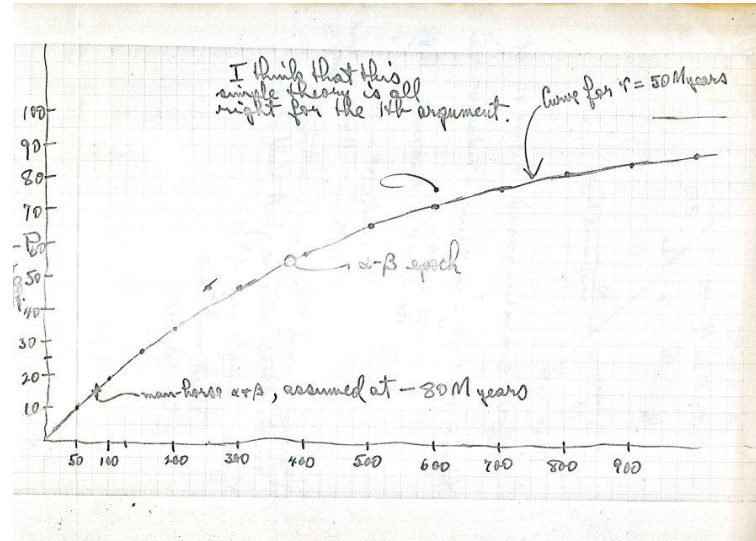 I think that this
simple theory is all
right for the Hb argument.
Curve for τ = 50 M years
100
90
80
70
60
50
40
30
20
10
α-β epoch
man-horse α+β, assumed at - 80 M years
50 100 200 300 400 500 600 700 800 900